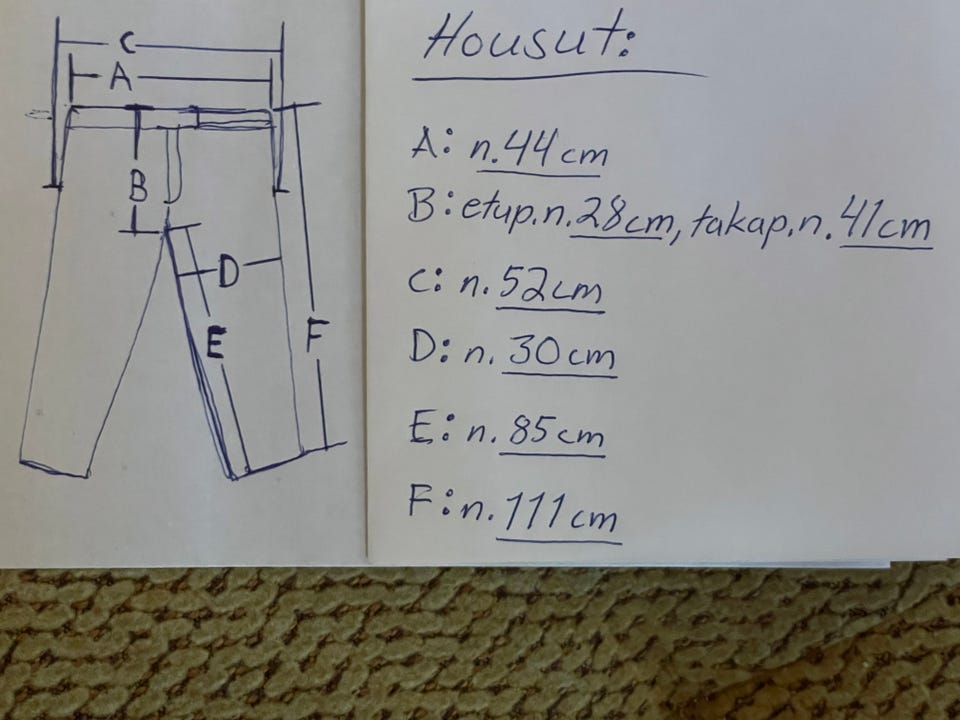 C
A
B
D
E
F
Housut:
A: n.44 cm
B: etup.n.28cm, takap.n.41cm
C: n.52cm
D: n.30cm
E: n.85cm
F: n.111cm